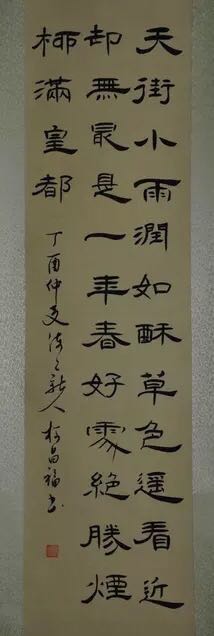 天街小雨潤如酥草色遙看近
却無最是一年春好處絕勝煙
柳滿皇都
丁酉仲夏人柯昌福书